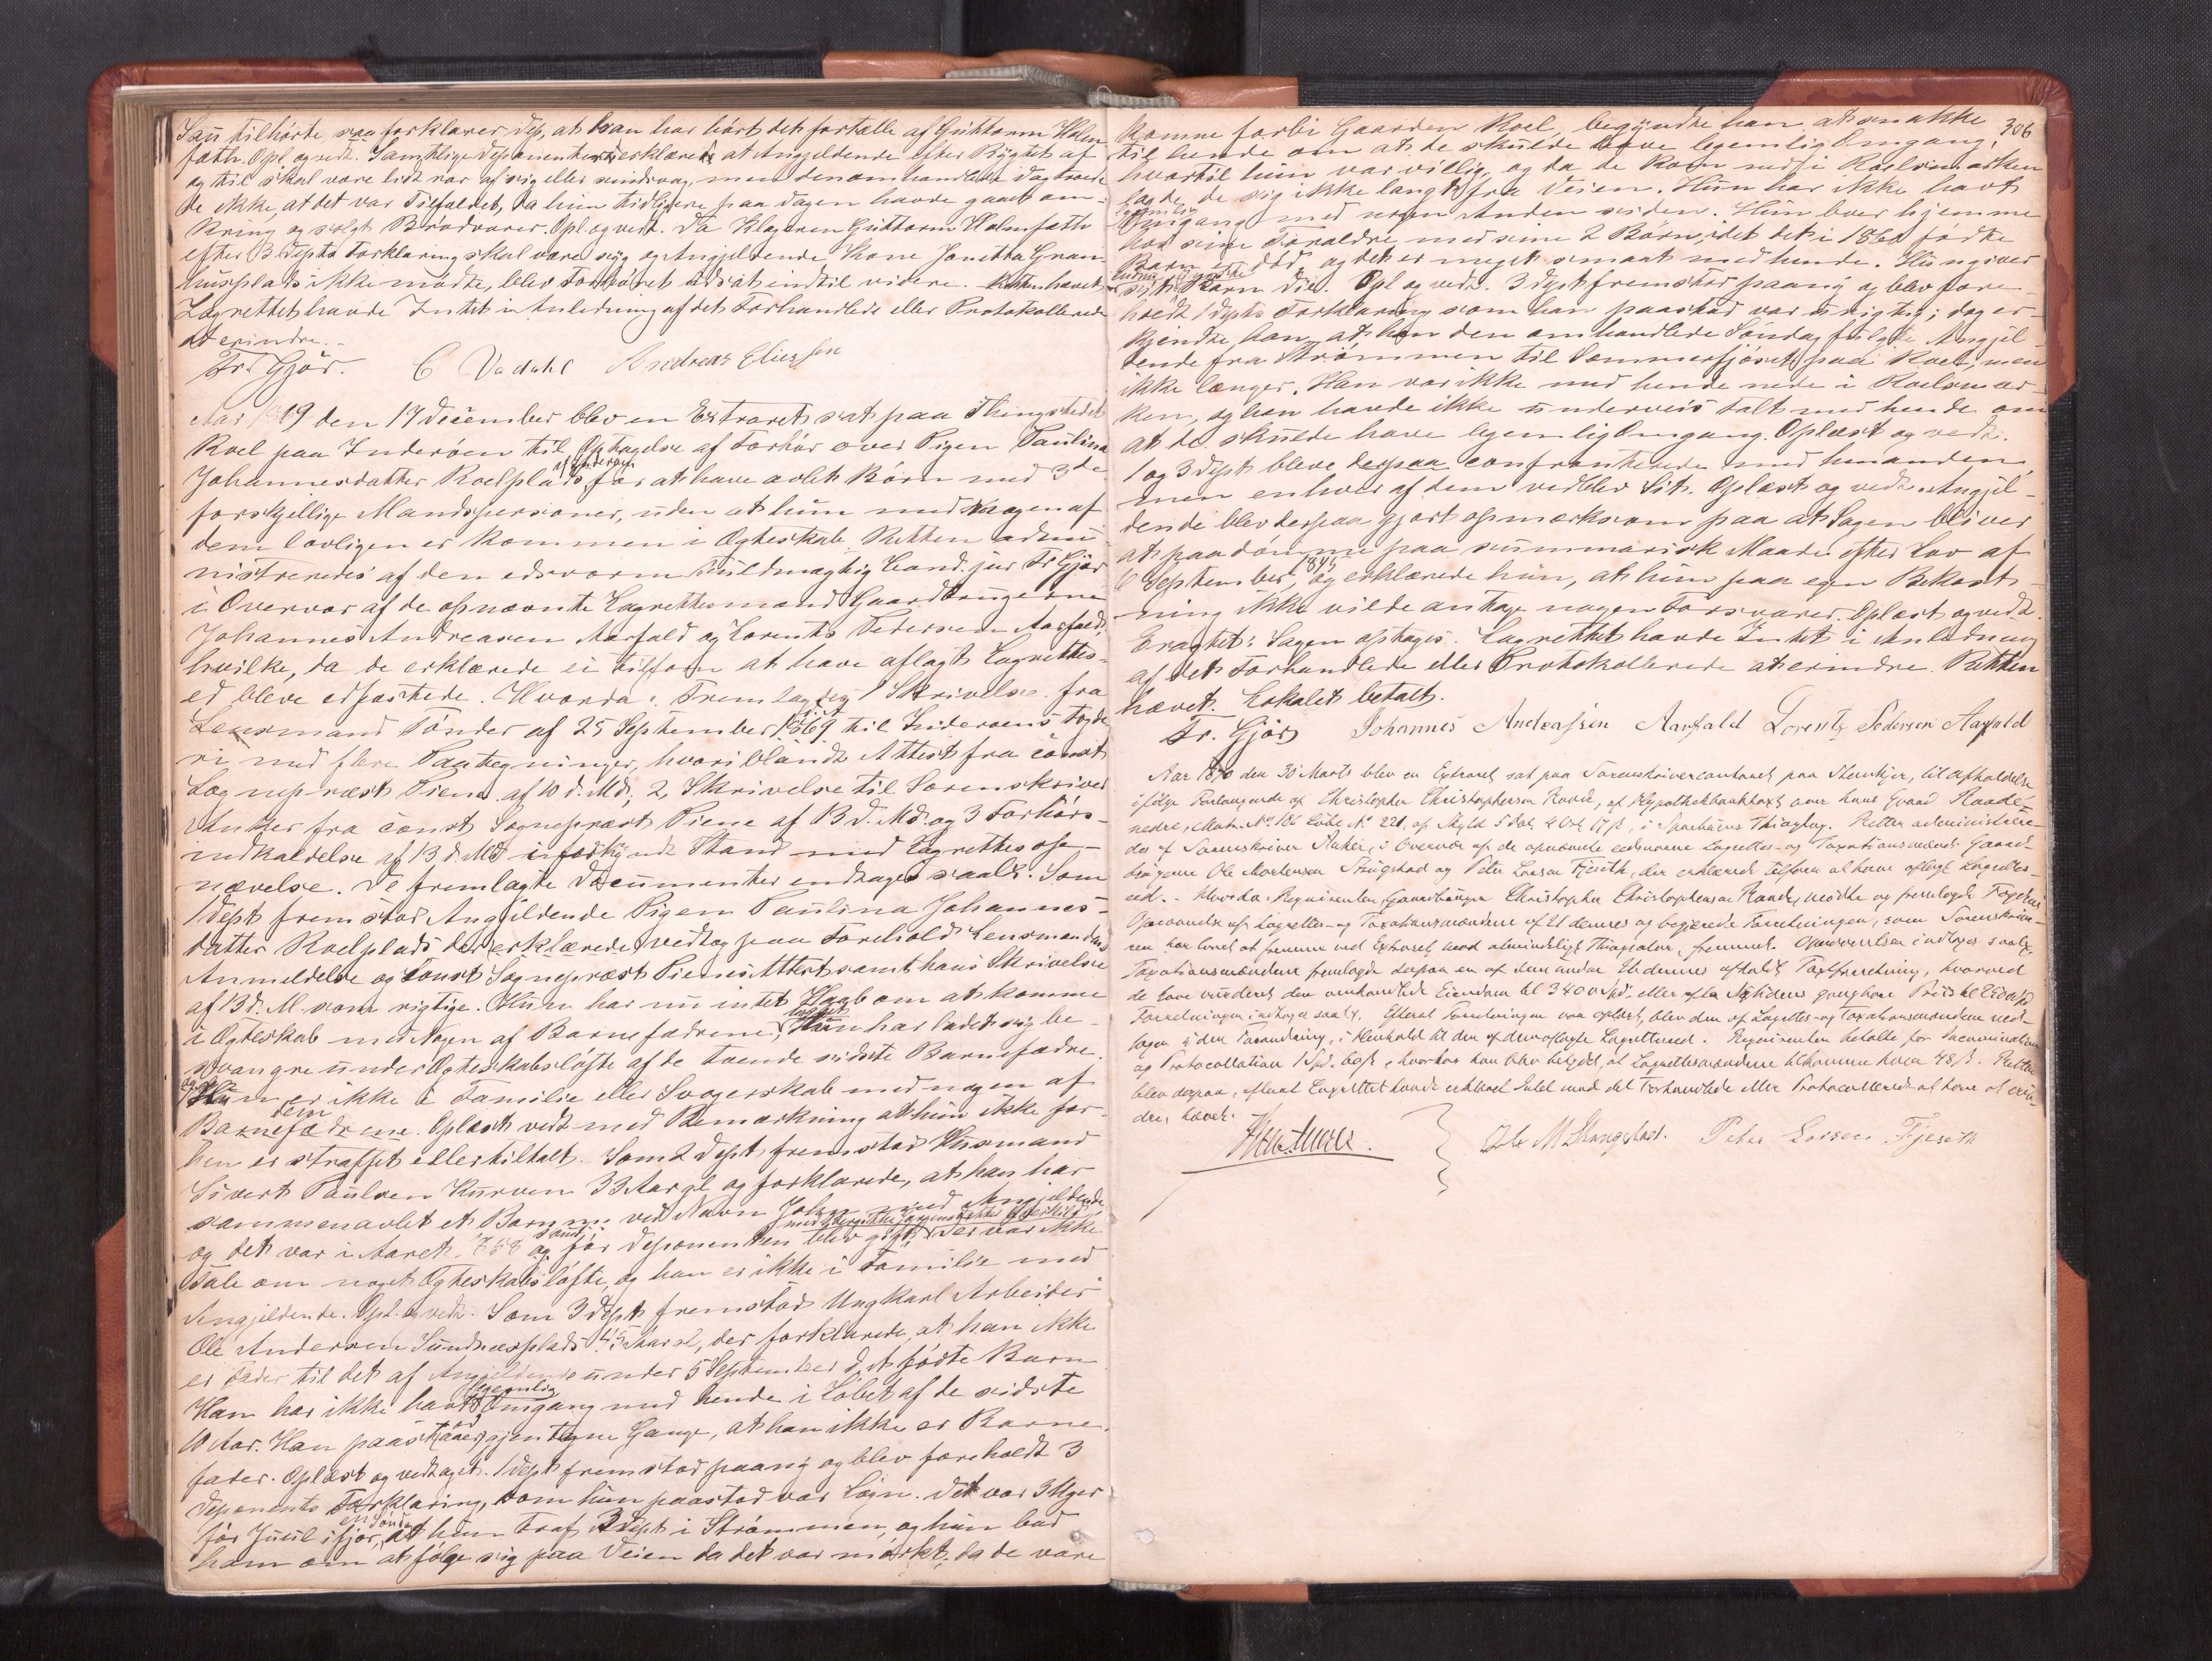 Sau tilhørte, saa forklarer Dep, at han har hørt det fortælle af Guttorm Holm
fæth. Opl og vedt. Samtlige Deponenter erklærede at Angjeldende efter Rygtet af
og til skal være lidt rar af sig eller sindsvag, men den omhandlede Dag troede
de ikke, at det var Tilfældet, da hun tidligere paa Dagen havde gaaet om-
kring og solgt Brødvarer. Opl. og vedt. Da Klageren Guttorm Holmfæth
efter 3 Depts Forklaring skal være syg og Angjeldende Kone Janetta Gran
husplads ikke mødte, blev Forhøret udsat indtil videre. Retten hævet
Lagrettet havde Intet i Anledning af det Forhandlede eller Protokollerede
at erindre. -
Fr. Gjør. C Vadahl Andreas Eliessen
Aar 1869 den 17 December blev en Extraret sat paa Thingstedet
Roel paa Inderøen til Optagelse af Forhør over Pigen Paulina
Johannesdatter Roelplads af Inderøen for at have avlet Børn med 3de
forskjellige Mandspersoner, uden at hun med Nogen af
dem lovligen er kommen i Ægteskab. Retten admi-
nistreredes af den edsvorne Fuldmægtig Cand. jur Fr Gjør
i Overvær af de opnævnte Lagrettesmænd Gaardbrugerne
Johannes Andreasen Aarfald og Lorents Pedersen Aarfald,
hvilke, da de erklærede ei tilforn at have aflagt Lagrettes-
ed bleve edfæstede. Hvorda: Fremlagdes 1 Skrivelse fra
Lensmand Tønder af 25 September 1869 til Inderøens Fogde
ri med flere Paategninger, hvoriblandt Attest fra const
Sognepræst Piene af 10 d. Md; 2, Skrivelse til Sorenskriver
Anker fra const Sognepræst Piene af 13 d. Md. og 3 Forhørs-
indkaldelse af 13 d. Md i forkyndt Stand med Lagrettesop-
nævnelse. De fremlagte Documenter indtages saal: Som
1 Dept fremstod Angjeldende Pigen Paulina Johannes-
datter Roelplads der erklærede vedtog paa Forehold Lensmandens
Anmeldelse og Const Sognepræst Pienes Attest samt hans Skrivelse
af 13 d. M. som rigtige. Hun har nu intet Haab om at komme
i Ægteskab med Nogen af Barnefædrene, Hun har ladet sig be-
svangre under Ægteskabsløfte af de tvende sidste Barnefædre.
Hun er ikke i Familie eller Svogerskab med nogen af
Barnefædrene dem. Oplæst vedt med Bemærkning at hun ikke før-
hen er straffet eller tiltalt. Som 2 Dept fremstod Husmand
Sivert Paulsen Kurven 33 Aar gl og forklarede, at han har
sammenavlet et Barn ved Navn Johan med Angjeldende
og det var i Aaret 1858 og før Deponenten blev gift; der var ikke
Tale om noget Ægteskabsløfte, og han er ikke i Familie med
Angjeldende. Opl. og vedt. Som 3 Dept fremstod Ungkarl Arbeider
Ole Andersen Sundnesplads 45 Aar gl, der forklarede, at han ikke
er Fader til det af Angjeldende under 5 September d. A. fødte Barn
Han har ikke havt legemlig Omgang med hende i Løbet af de sidste
10 Aar. Han paastod gjentagne Gange, at han ikke er Barne
fader. Oplæst og vedtaget. 1 Dept fremstod paany og blev foreholdt 3
Deponents Forklaring, som hun paastod var Løgn. Det var 3 Uger
før Juul ifjor, at hun traf 3 Dept i Strømmen, og hun bad
ham om at følge sig paa Veien da det var mørkt; da de vare
306
komne forbi Gaarden Roel, begyndte han at snakke
til hende om at de skulde have legemlig Omgang,
hvortil hun var villig, og da de kom ned i Roelsmarken
lagde de sig ikke langt fra Veien. Hun har ikke havt
legemlig Omgang med nogen Anden siden. Hun boer hjemme
hos sine Forældre med sine 2 Børn, idet det i 1860 fødte
Barn er død og det er meget smaat med hende. Hun giver
sit Barn Die. Opl og vedt. 3 Dept fremstod paany og blev fore-
holdt 1 Depts Forklaring som han paastod var urigtig; dog er-
kjendte han, at han den omhandlede Søndag fulgte Angjel-
dende fra Strømmen til Sommerfjøset paa Roel, men
ikke længer. Han var ikke med hende nede i Roelsmar-
ken, og han havde ikke underveis talt med hende om
at de skulde have legemlig Omgang. Oplæst og vedt.
1 og 3 Dept bleve derpaa confronterede med hinanden,
men enhver af dem vedblev Sit. Oplæst og vedt. Angjel-
dende blev derpaa gjort opmærksom paa at Sagen bliver
at paadømme paa summarisk Maade efter Lov af
6 September 1845, og erklærede hun, at hun paa egen Bekost-
ning ikke vilde antage nogen Forsvarer. Oplæst og vedt.
Eragtet: Sagen optages. Lagrettet havde Intet i Anledning
af det Forhandlede eller Protokollerede at erindre. Retten
hævet. Eskalet betalt.
Fr. Gjør Johannes Andreassen Aarfald Lorents Pedersen Aarfald
Aar 1870 den 30 Marts blev en Extraret sat paa Sorenskrivercontoret paa Stenkjer, til Afholdelse
ifølge Forlangende af Christopher Christophersen Raade, af Hypothekbanktaxt over hans Gaard Raade
nedre, Matr. No 186 Løbe No 221, af Skyld 5 Dal. 2 Ort 17 s, i Sparbuens Thinglag. Retten administrere-
des af Sorenskriver Anker, i Overvær af de opnævnte edsvorne Lagrettes- og Taxationsmænd Gaard-
brugerne Ole Mortensen Stangstad og Peter Larsen Fjeseth, der erklærede tilforn at have aflagt Lagrettes-
ed. - Hvorda: Requirenten, Gaardbruger Christopher Christophersen Raade, mødte og fremlagde Fogdens
Opnævnelse af Lagrettes- og Taxationsmændene af 21 dennes og begjærede Forretningen, som Sorenskrive-
ren har lovet at fremme ved Extraret mod almindeligt Thinggebyr, fremmet. Opnævnelsen indtages saal.
Taxationsmændene fremlagde derpaa en af dem under Et dennes afholdt Taxtforretning, hvorved
de have vurderet den omhandlede Eiendom til 3400 Spd. eller efter Nytidens gangbare Priis til
Forretningen indtages saal. Efterat Forretningen var oplæst, blev den af Lagrettes- og Taxationsmændene ved-
tagen i den Forandring, i Henhold til den af dem aflagte Lagrettesed. Requirenten betalte for
og Protocollation 1 Spd. 60 s, hvorhos han blev betydet, at Lagrettesmændene tilkomme hver 48 s. Retten
blev derpaa, efterat Lagrettet havde erklæret Intet mod det Forhandlede eller Protocollerede at have at erin-
dre, hævet.
Ole M Stangstad. Peter Larsen Fjeseth